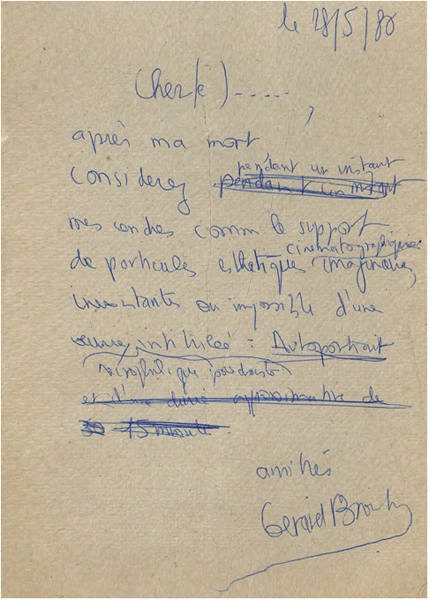 le 28/5/80
Cher(e) .....,
après ma mort
pendant un instant
considerez pendant un instant
mes cendres comme le support
cinematographiques
de particules esthétiques imaginaires,
inexistantes ou impossible d'une
œuvre intitulée : Autoportrait
et d'une durée approximative de
30 15 minute.
amitiés
Gerard